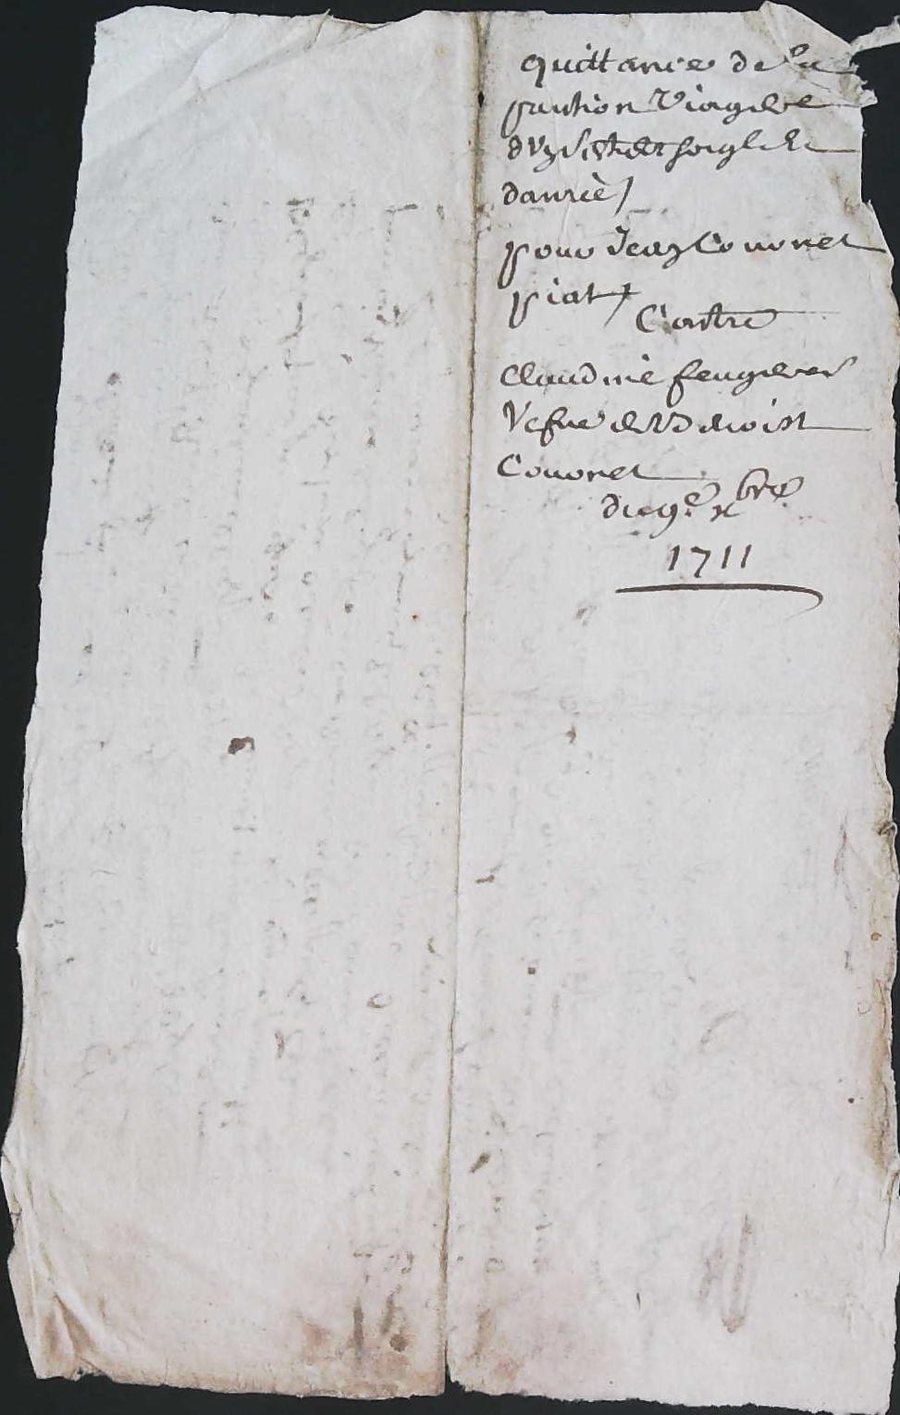 quittance de la
pantion Viagere
d'ung bichet soigle et
danrée
pour Jean Couvret
piat
Contre
Claudine feugere
Vefue de Benoist
Couvret
du 9e xbre
1711